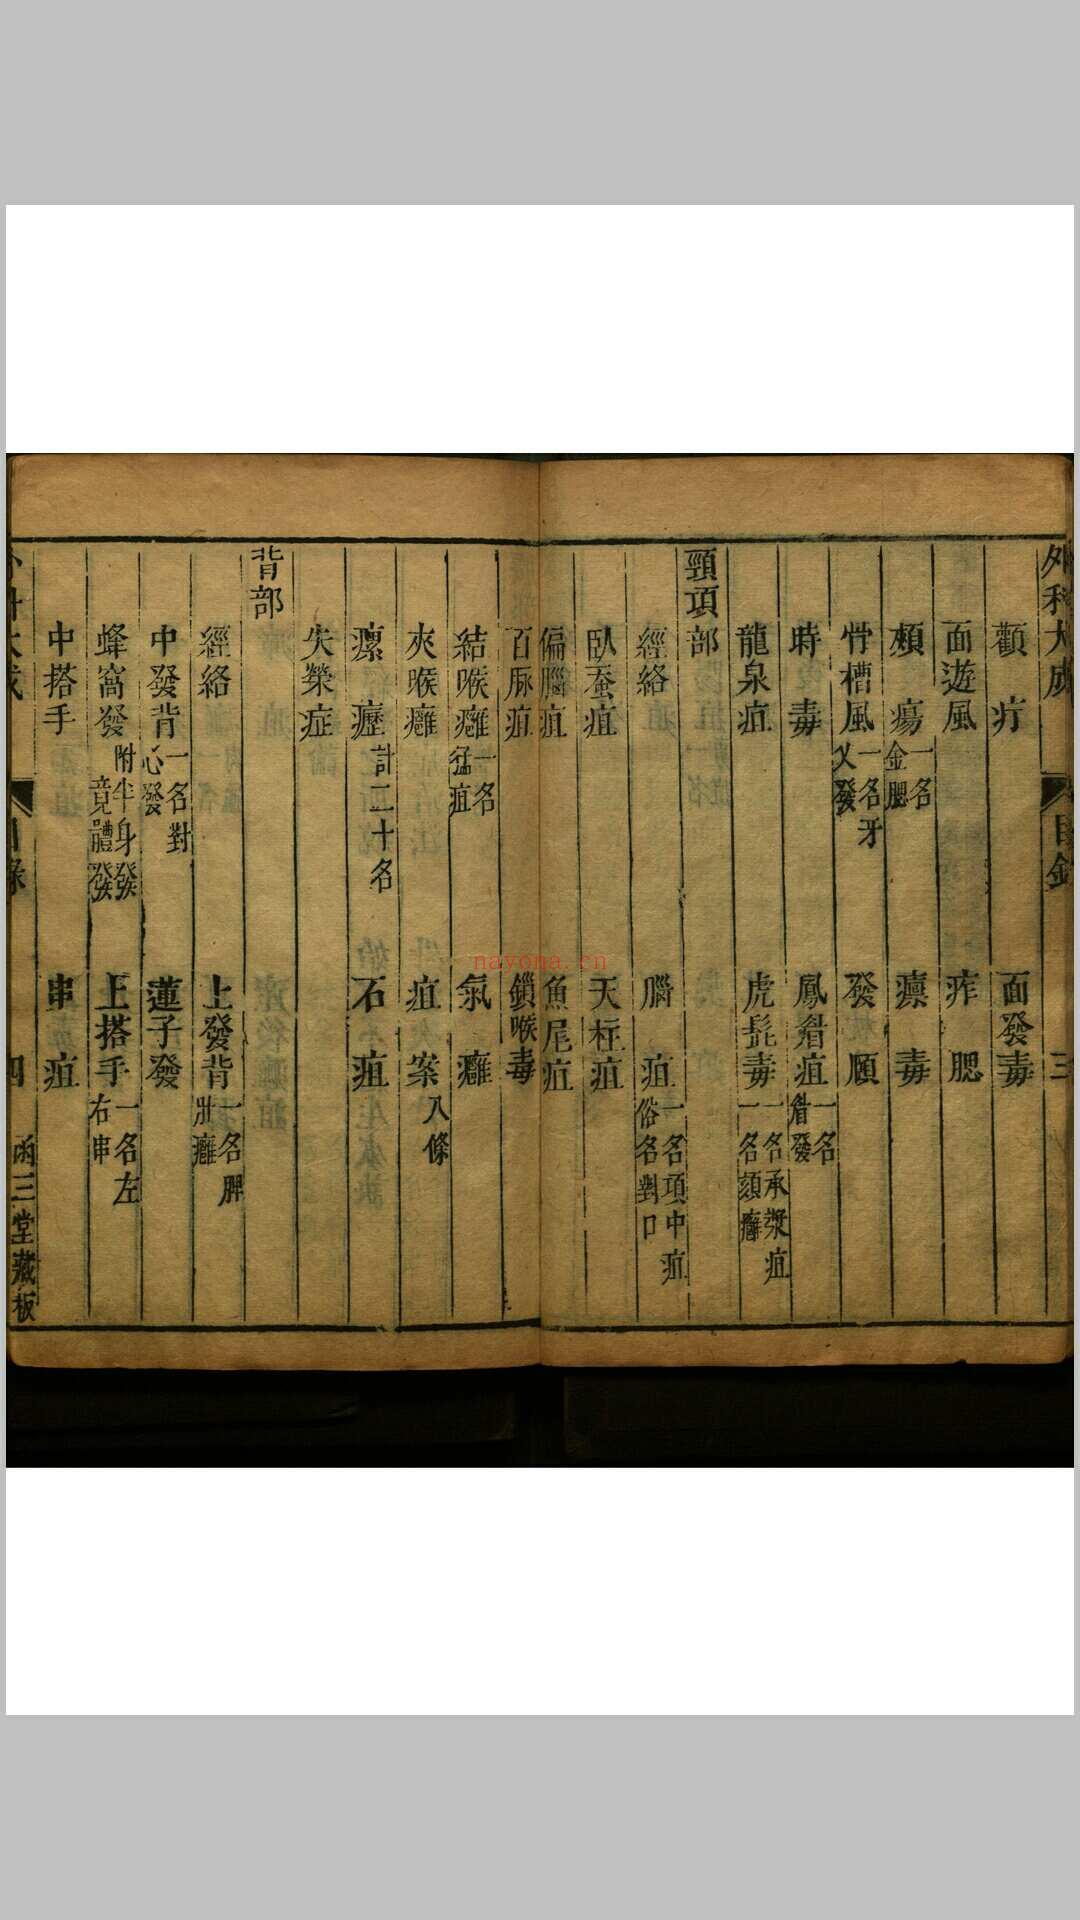 外科大成 目錄 三
顴疔 面發毒
面遊風 痄腮
頰瘍 一名金腮 瘭毒
骨槽風 一名牙乂發 發頤
時毒 鳳眉疽 一名眉發
龍泉疽 虎髭毒 一名承漿疽 一名頦癰
頸項部
經絡 腦疽 一名項中疽 俗名對口
臥蚕疽 天柱疽
偏腦疽 魚尾疽
百脉疽 鎖喉毒
結喉癰 一名猛疽 氣癰
夾喉癰 疽案 八條
瘰癧 計二十名 石疽
失榮症
背部
經絡 上發背 一名脾壯癰
中發背 一名對心發 蓮子發
蜂窩發 附半身發 竟體發 上搭手 一名左右串
中搭手 串疽
外科大成 目錄 四 函三堂藏板
nayona.cn